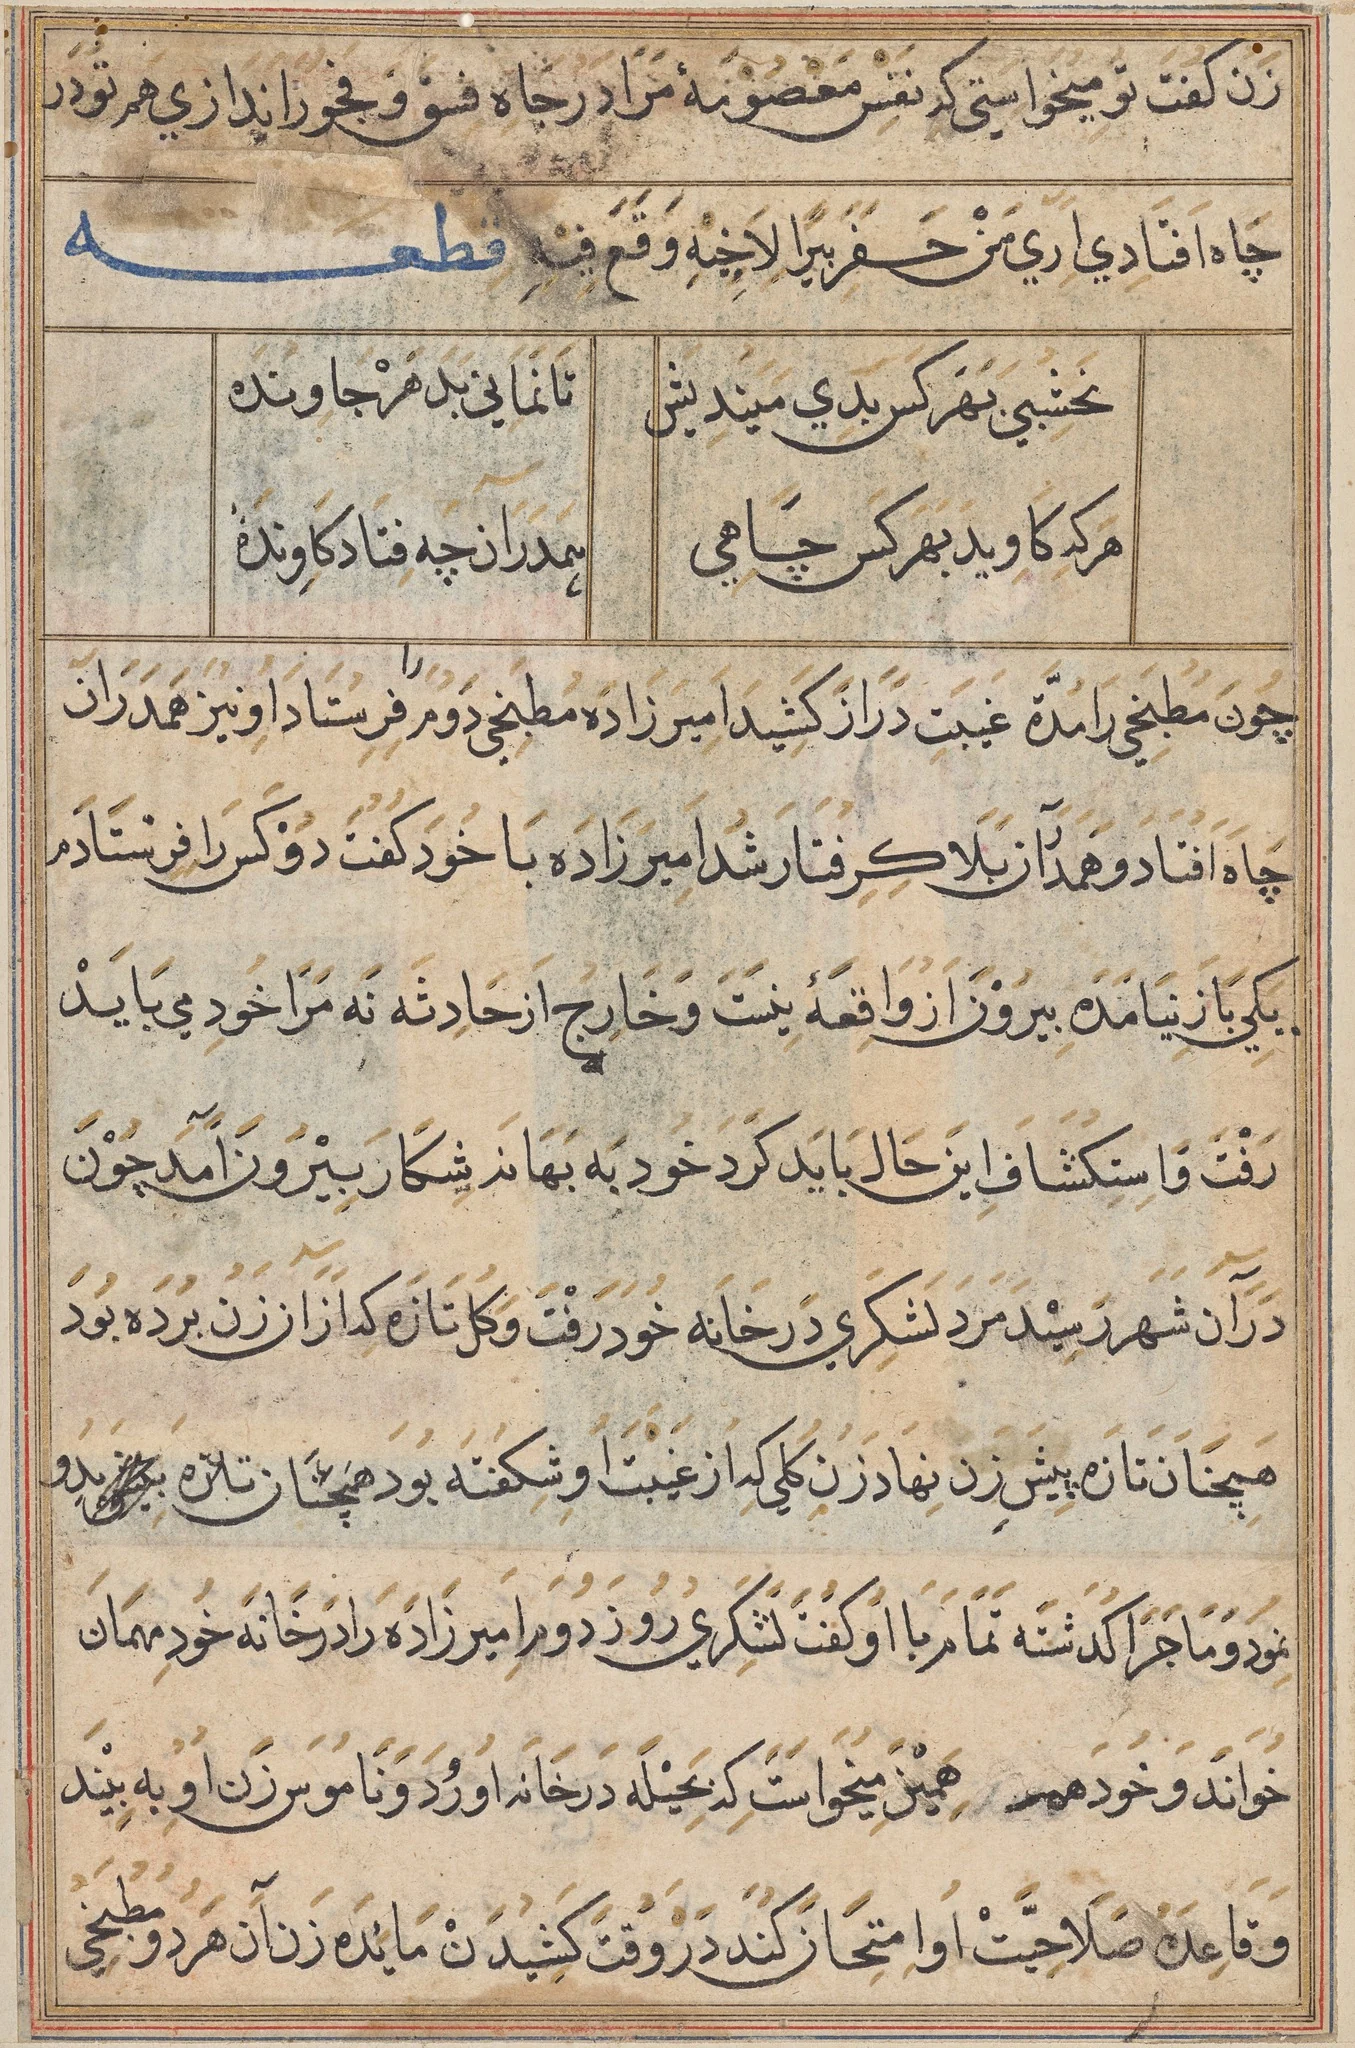 زن کفت تو میخواستی که نفس معصومهٔ مرا در چاه فسق و فجور اندازی هم تو در
چاه افتادی اری من حفر بیرا لاخیه وقع فیه قطعه
نخشبی بهر کس بدی میندیش تا نمانی بد هر جا وبنده
هرکه کاوید بهر کس چاهی هم دران چه فتاد کاونده
چون مطبخی را مدة غیبت دراز کشید امیرزاده مطبخی دوم را فرستاد او نیز همدران
چاه افتاد و همدران بلا کرفتار شد امیرزاده با خود کفت دو کس را فرستادم
یکی باز نیامده بیرون از واقعهٔ نیست و خارج از حادثه نه مرا خود می باید
رفت و استکشاف این حال باید کرد خود به بهانه شکار بیرون آمد چون
درآن شهر رسید مرد لشکری در خانه خود رفت و کل تازه که ازان زن برده بود
همچنان تازه پیش زن نهاد زن کلی که از غیبت او شکفته بود همچنان تازه بدو
نمود و ماجرا کذشته تمام با او کفت لشکری روز دوم امیرزاده را در خانه خود مهمان
خواند و خود هم همین میخواست که بحیله در خانه او رود و ناموس زن او به بیند
و قاعده صلاحیت او امتحان کند در وقت کشیدن مائده زن آن هر دو مطبخی